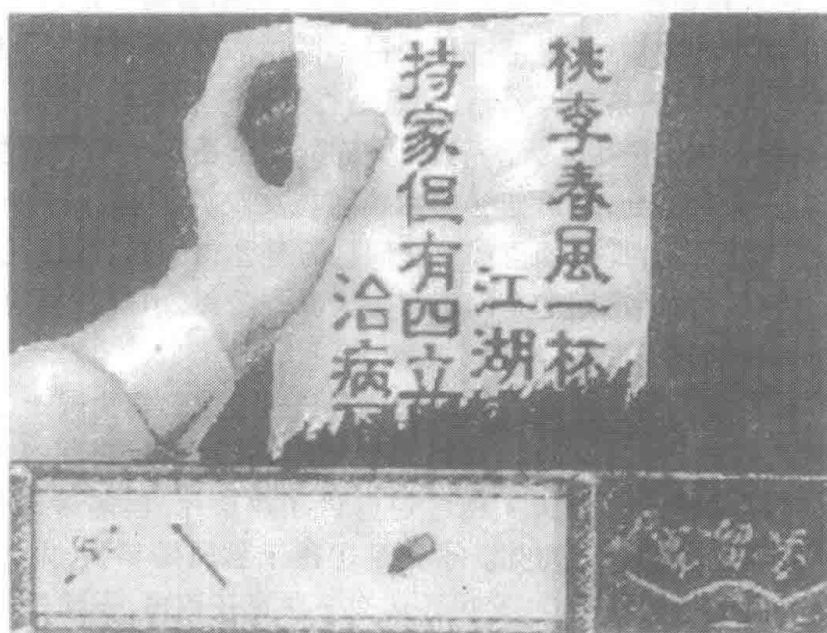 桃李春風一杯
江湖
持家但有四立
治病